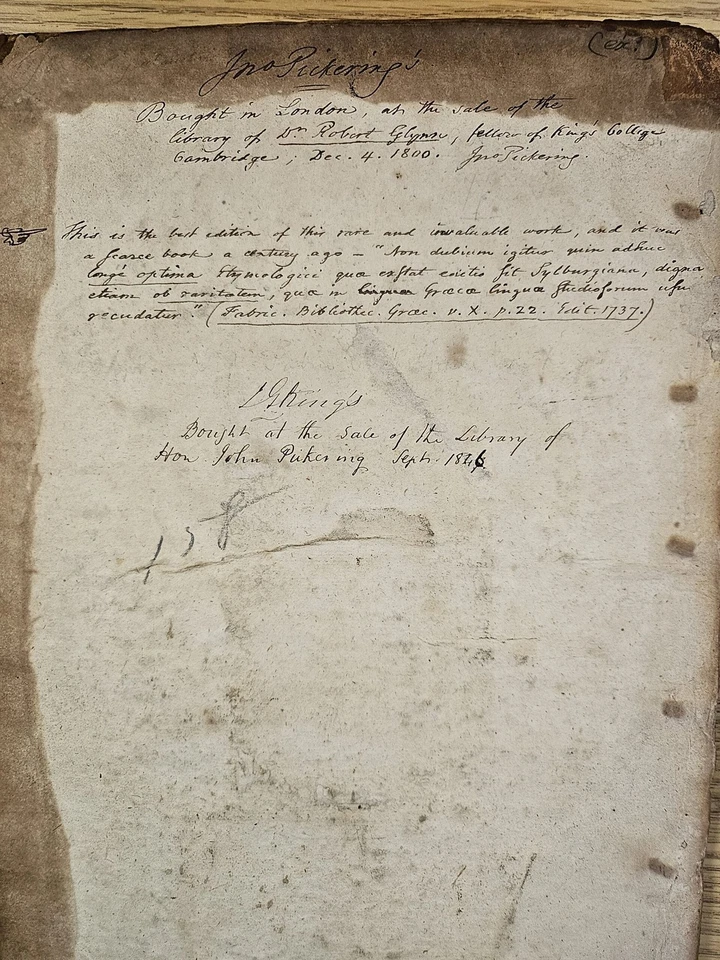 (ex!)
Jno Pickering's
Bought in London, at the sale of the
library of Dr. Robert Glynn, fellow of King's College
Cambridge; Dec. 4. 1800. Jno Pickering.
☞ This is the best edition of this rare and invaluable work, and it was
a scarce book a century ago – "Non dubium igitur quin adhuc
longè optima Etymologici quæ exstat editio sit Sylburgiana, digna
etiam ob raritatem, quæ in linguæ Græcæ linguæ studiosorum usu
recudatur." (Fabric. Bibliothec. Græc. v. X. p. 22. Edit. 1737.)
King's
Bought at the sale of the Library of
Hon John Pickering Sept. 1846